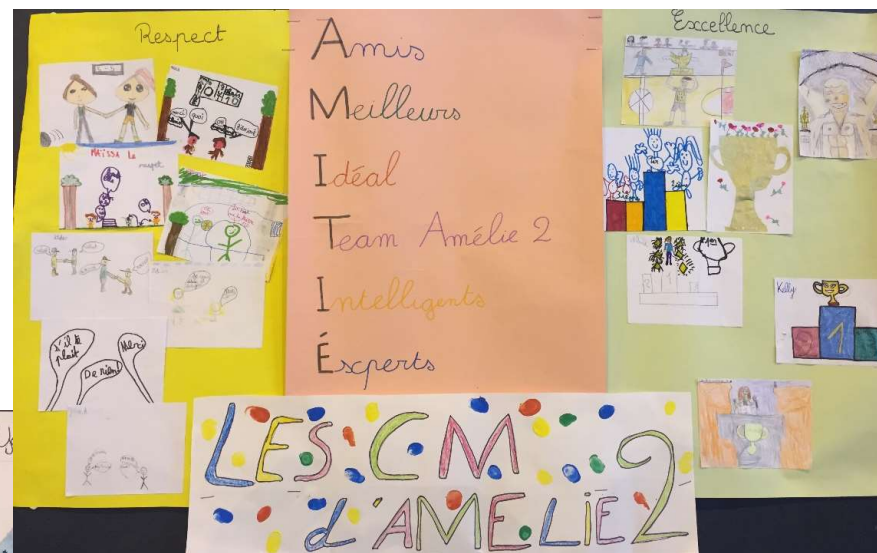 Respect
MAÏSSA le
respect
S'il te
plaît
De rien!
Merci
Amis
Meilleurs
Idéal
Team Amélie 2
Intelligents
Experts
Excellence
Kelly
1
LES CM
d'AMELIE 2